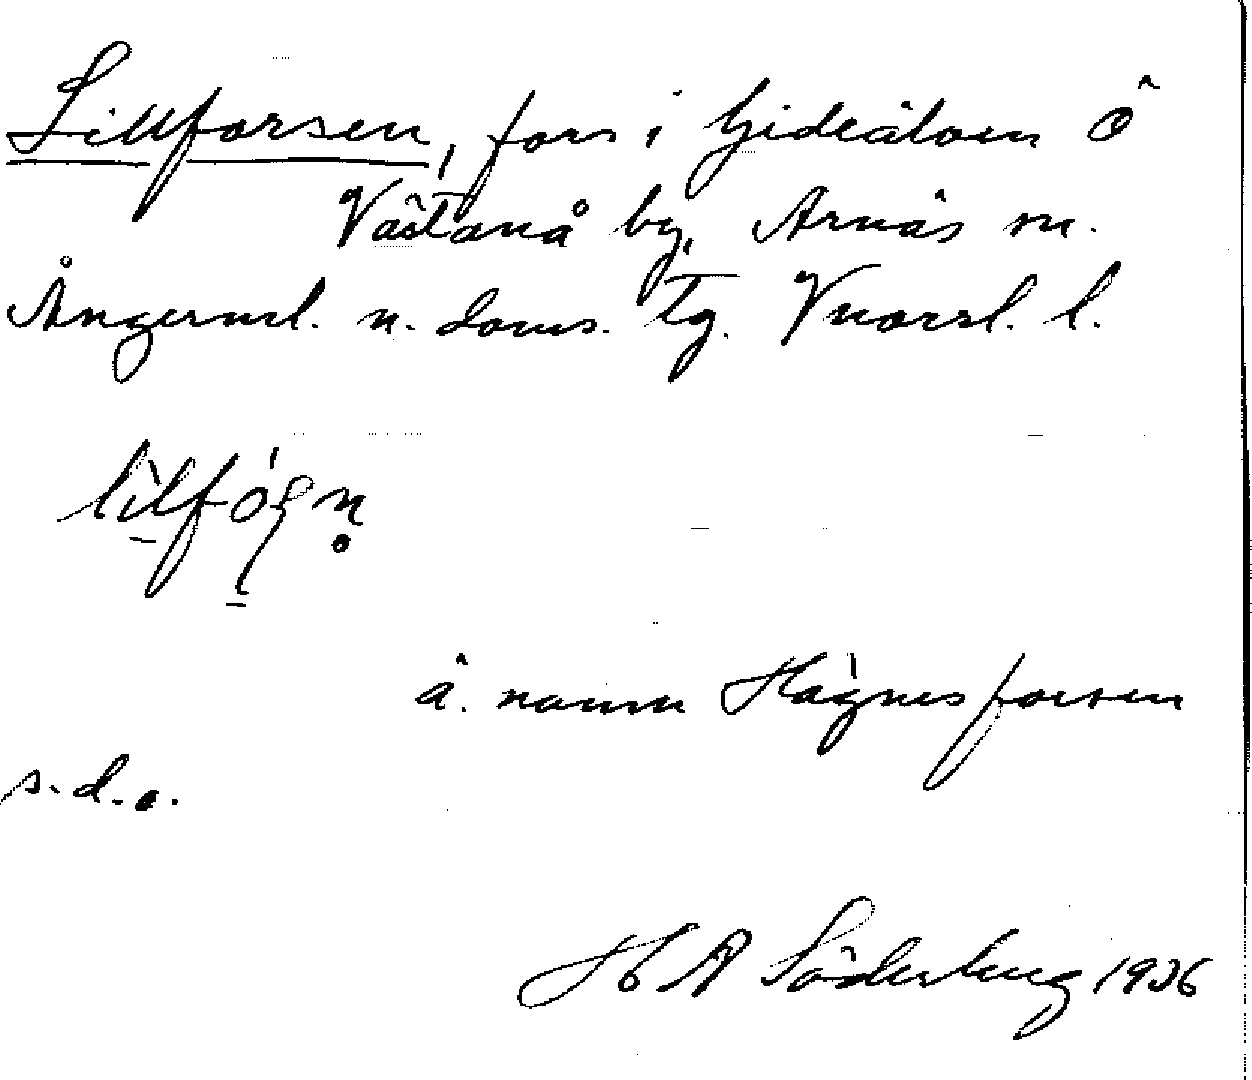 Lillforsen, fors i Gideälven Ö
Västanå by, Arnäs sn.
Ångerml. n. doms. tg. Vnorrl. l.
ä. namn Hägnesforsen
s.d.o.
H A Söderberg 1936